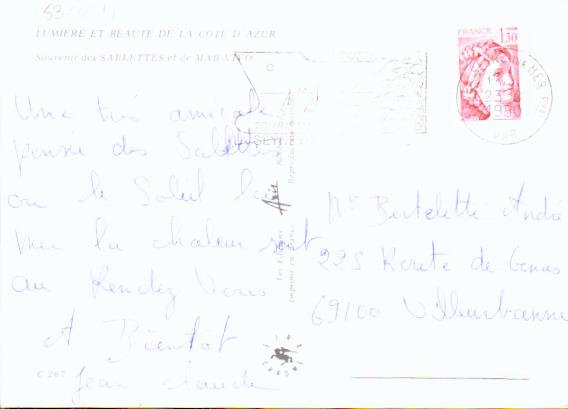 LUMIERE ET BEAUTE DE LA COTE D AZUR
Souvenir des SABLETTES et de MAR VIVO
FRANCE
1,30
Une très amicale
pensé des Sablettes
ou le Soleil la
mer la chaleur sont
au Rendez Vous
A Bientôt
Jean Claude
Mr Berteletti André
225 Route de Genas
69100 Villeurbanne
Les Editions
C 267